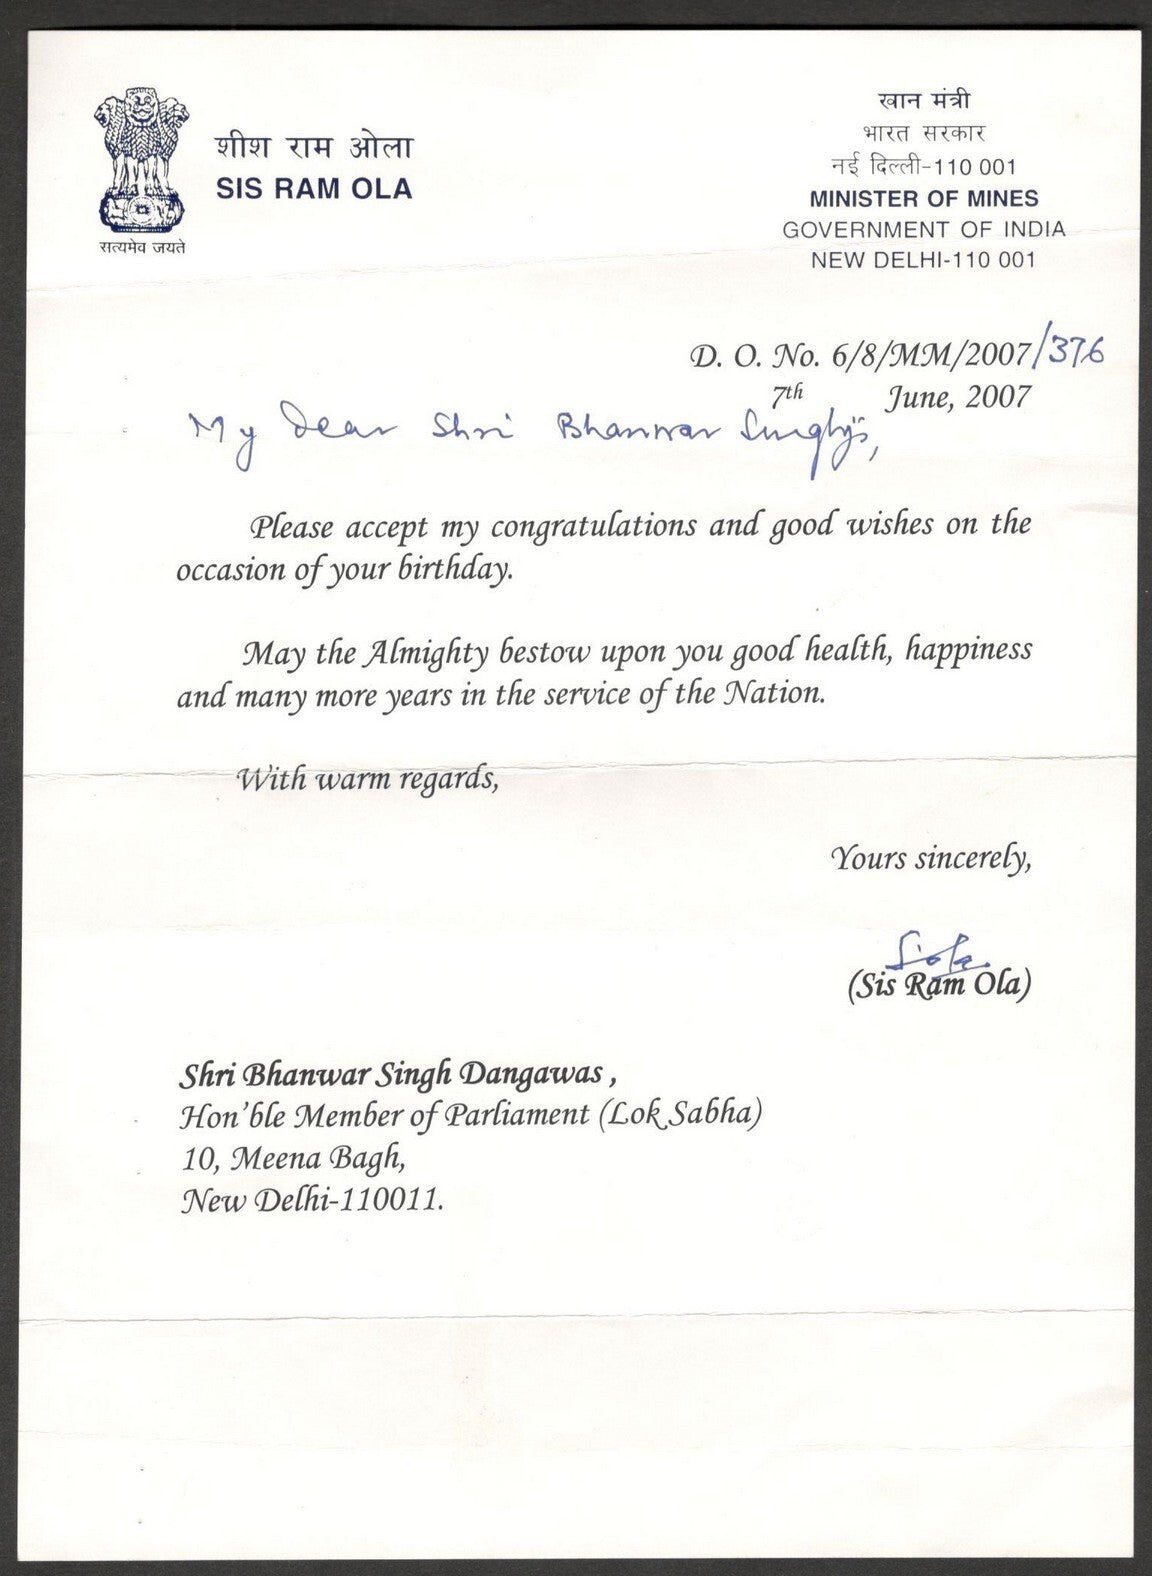 शीश राम ओला
SIS RAM OLA
सत्यमेव जयते
खान मंत्री
भारत सरकार
नई दिल्ली-110 001
MINISTER OF MINES
GOVERNMENT OF INDIA
NEW DELHI-110 001
D. O. No. 6/8/MM/2007/376
7th June, 2007
My Dear Shri Bhanwar Singhji,
Please accept my congratulations and good wishes on the
occasion of your birthday.
May the Almighty bestow upon you good health, happiness
and many more years in the service of the Nation.
With warm regards,
Yours sincerely,
(Sis Ram Ola)
Shri Bhanwar Singh Dangawas ,
Hon'ble Member of Parliament (Lok Sabha)
10, Meena Bagh,
New Delhi-110011.